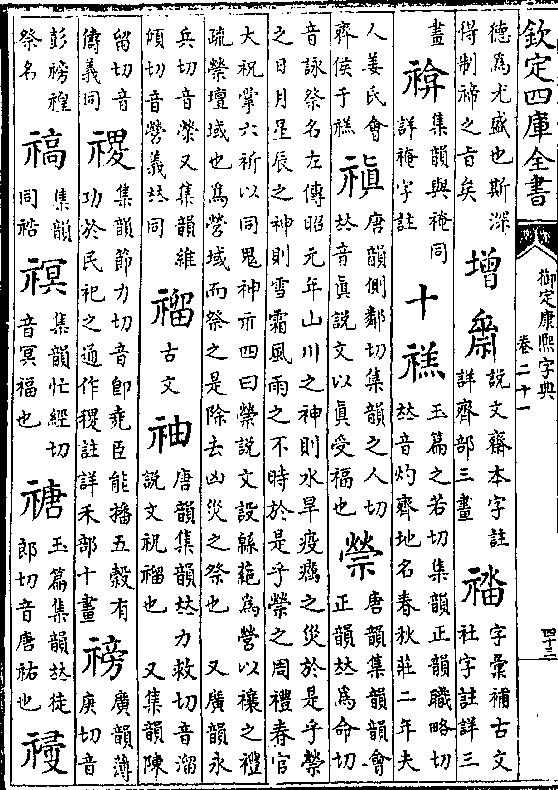 欽定四庫全書
御定康熙字典
卷二十一
四十三
德爲尤盛也斯深
得制禘之旨矣
增
說文齋本字註
詳齊部三畫
字彙補古文
社字註詳三
畫
詳𥚮字註
十
禚
玉篇之若切集韻正韻職略切
𠀤音灼齊地名春秋莊二年夫
人姜氏會
齊侯于禚
禛
唐韻側鄰切集韻之人切
𠀤音眞說文以眞受福也
禜
唐韻集韻韻會
正韻𠀤爲命切
音詠祭名左傳昭元年山川之神則水旱疫癘之災於是乎禜
之日月星辰之神則雪霜風雨之不時於是乎禜之周禮春官
大祝掌六祈以同鬼神示四曰禜說文設緜蕝爲營以禳之禮
疏禜壇域也爲營域而祭之是除去凶災之祭也 又廣韻永
兵切音榮又集韻維
傾切音營義𠀤同
古文
唐韻集韻𠀤力救切音溜
又集韻陳
留切音
儔義同
禝
集韻節力切音卽堯臣能播五穀有
功於民祀之通作稷註詳禾部十畫
廣韻薄
庚切音
祭名
集韻
同祰
集韻忙經切
音冥福也
禟
玉篇集韻𠀤徒
郎切音唐祐也